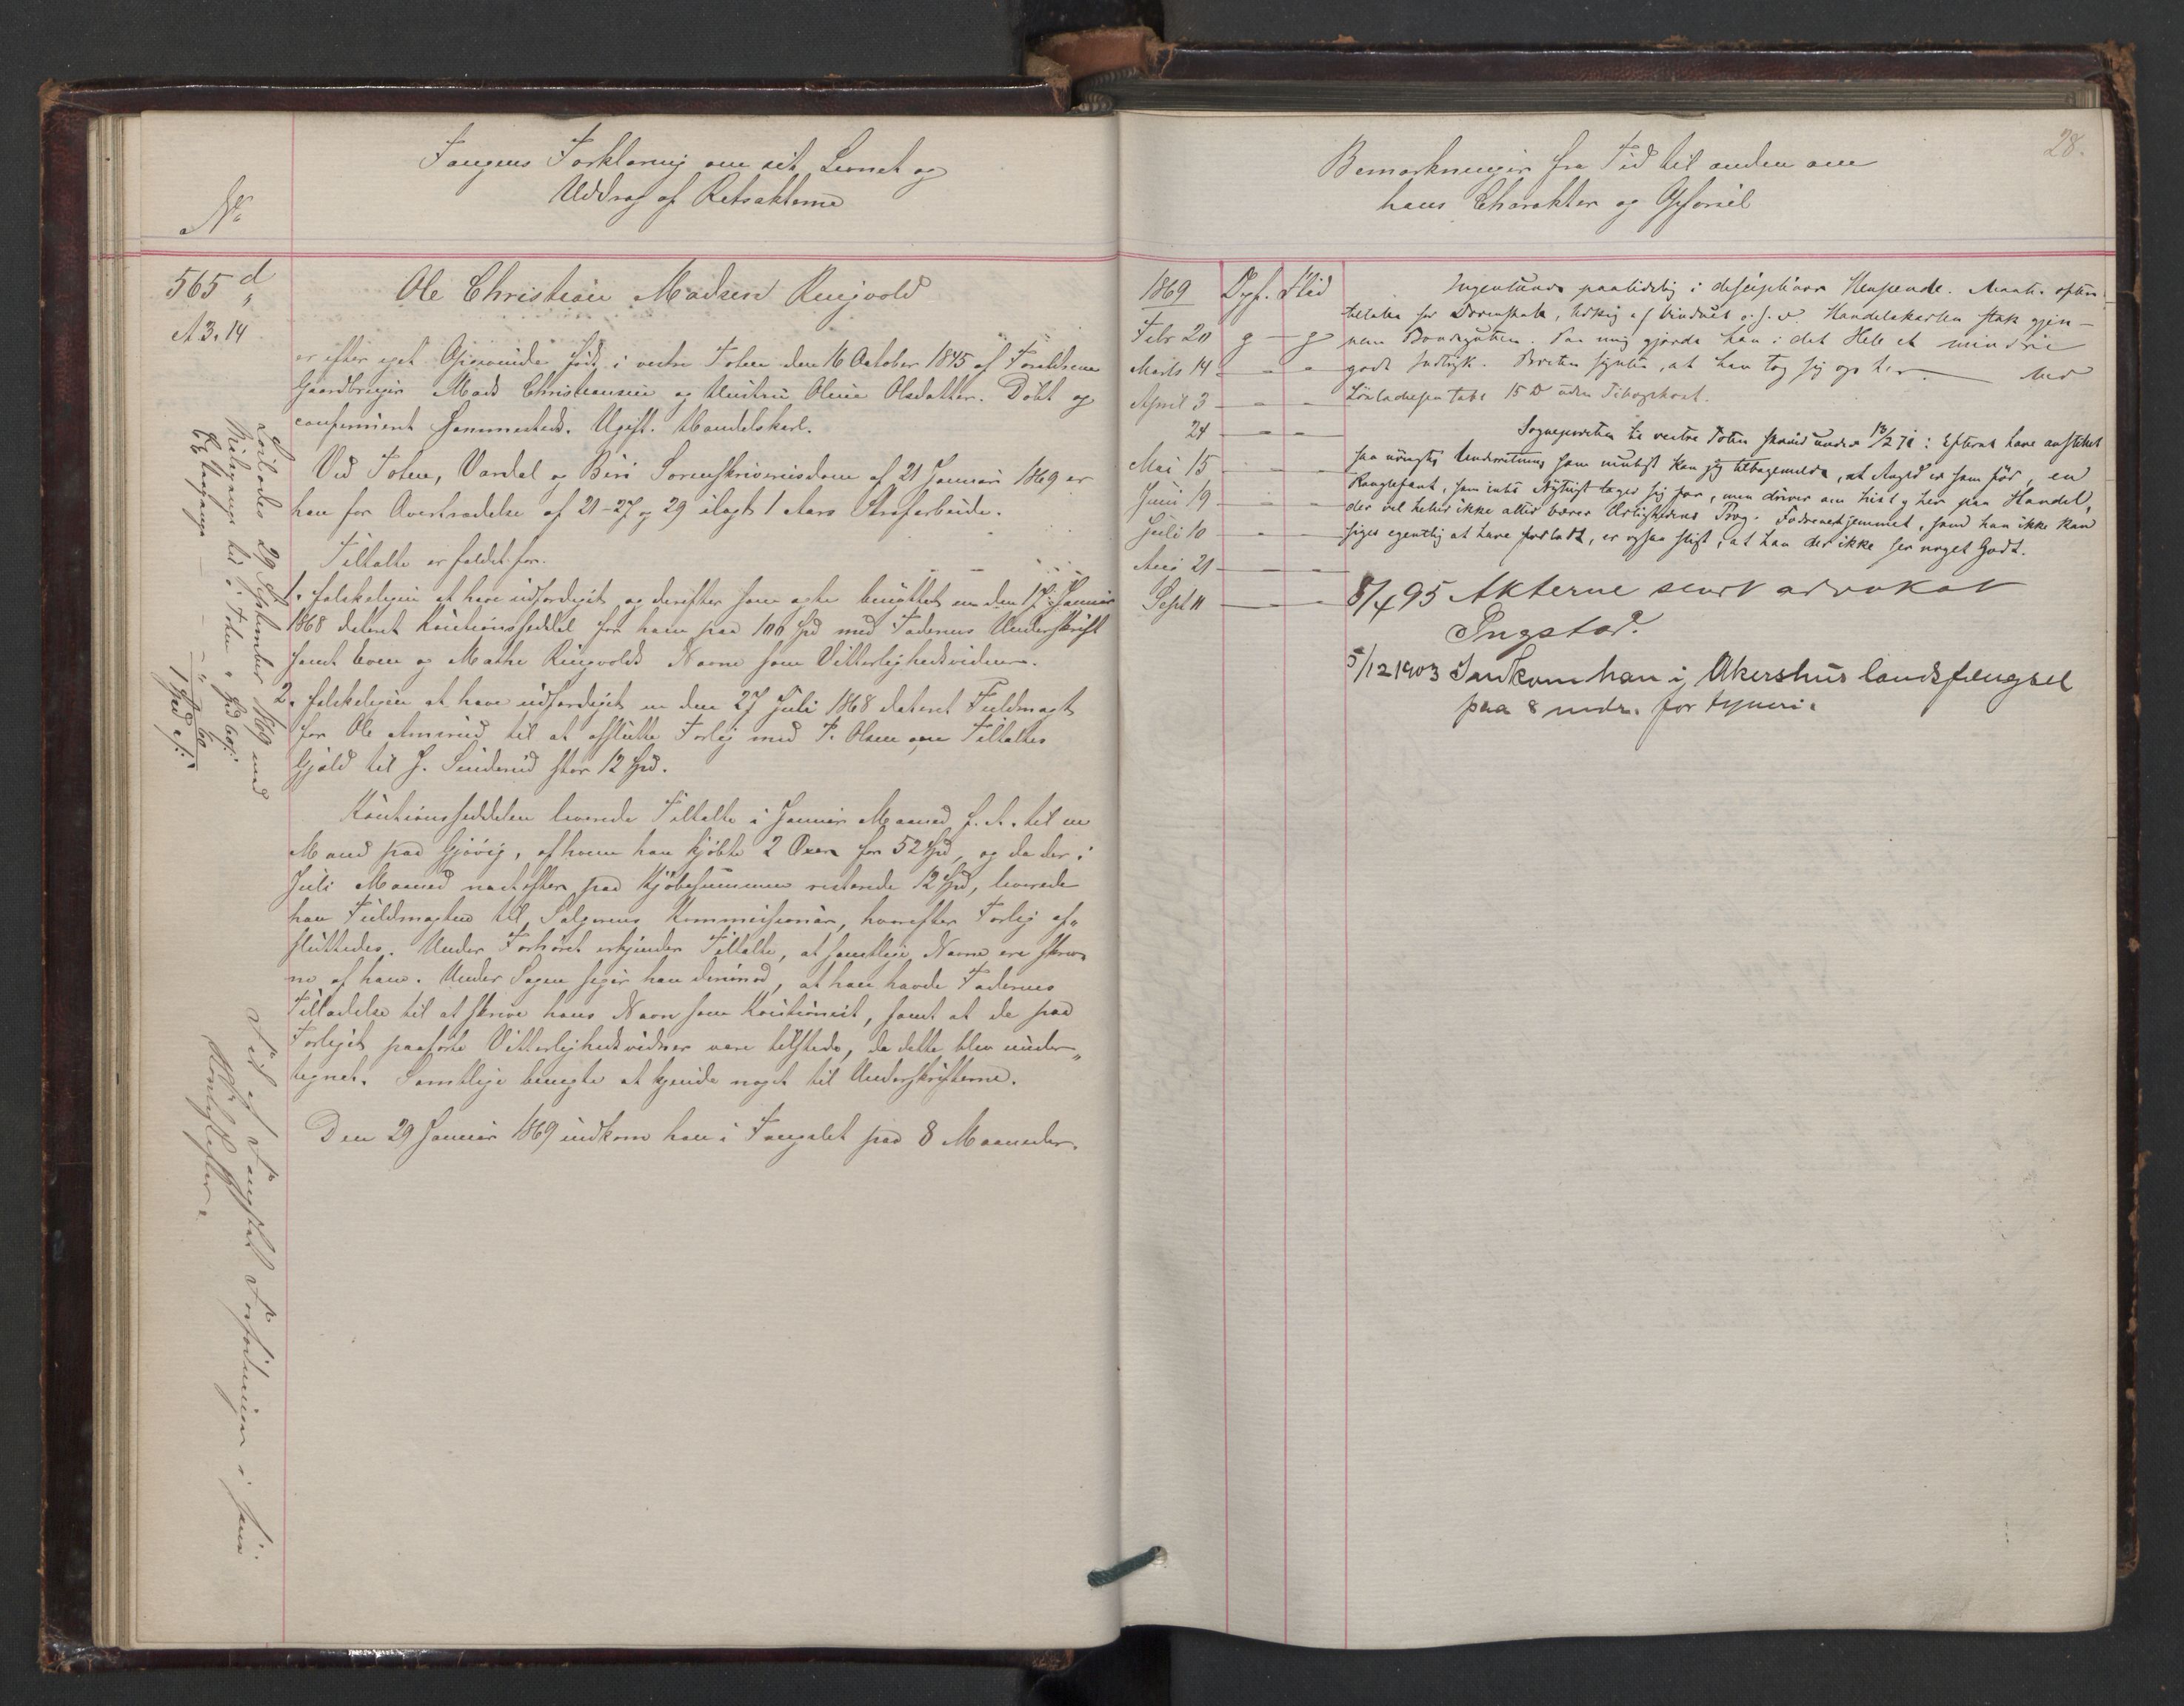 No
Fangens Forklaring om sit Levnet og
Uddrag af Retsakterne
565 d
A 3. 14
Ole Christian Madsen Ringvold
er efter eget Opgivende født i vestre Toten den 16 October 1845 af Forældrene
Gaardbruger Mads Christiansen og Hustru Oline Olsdatter. Døbt og
confirmeret sammesteds. Ugift. Handelskarl.
Ved Toten, Vardal og Biri Sorenskriverisdom af 21 Januar 1869 er
han for Overtrædelse af 21-27 og 29 ilagt 1 Aars Strafarbeide.
Tiltalte er fældet for
1. falskeligen at have udfærdiget og derefter som ægte benyttet en den 17 Januar
1868 dateret Kautionsseddel for ham paa 100 Spd med Faderens Underskrift
samt Even og Mathe Ringvolds Navne som Vitterlighedsvidner.
2. falskeligen at have udfærdiget en den 27 Juli 1868 dateret Fuldmagt
for Ole Amrud til at afslutte Forlig med F. Olsen om Tiltaltes
Gjæld til J. Sinderud stor 12 Spd.
Kautionsseddelen leverede Tiltalte i Januar Maaned f. A. til en
Mand paa Gjøvig, af hvem han kjøbte 2 Oxer for 52 Spd, og da der i
Juli Maaned næstefter paa Kjøbesummen resterede 12 Spd, leverede
han Fuldmagten til Sælgerens Kommissionær, hvorefter Forlig af„
sluttedes. Under Forhøret erkjender Tiltalte, at samtlige Navne ere skrev„
ne af ham. Under Sagen siger han derimod, at han havde Faderens
Tilladelse til at skrive hans Navn som Kautionist, samt at de paa
Forliget paaførte Vitterlighedsvidner vare tilstede, da dette blev under„
tegnet. Samtlige benegte at kjende noget til Underskrifterne.
Den 29 Januar 1869 indkom han i Fængslet paa 8 Maaneder.
Løslades 29 September 1869 med
1 Spd
28.
Bemærkninger fra Tid til anden om
hans Charakter og Opførsel
1869 Opf. Flid
Febr 20 g - g
Marts 14 - -
April 3 - -
24 - -
Mai 15 - -
Juni 19 - -
Juli 10 - -
Aug 21 - -
Sept 11 - -
Ingenlunde paalidelig i disciplinær Henseende. Maatte ofte
tiltales for Dovenskab, Udkig af Vinduet o. s. v. Handelskarlen stak gjen-
nem Bondegutten. Paa mig gjorde han i det Hele et mindre
godt Indtryk. Presten syntes, at han tog sig op her.
Sognepresten til vestre Toten skriver under 13/2 71: Efterat have anstillet
saa nøiagtig Undersøgelse som muligt kan jeg tilbagemelde, at Angjd er som før, en
Ranglefant, som intet Nyttigt tager sig for, men driver om hist og her paa Handel,
der vel heller ikke altid bærer Ærlighedens Præg. Fædrenehjemmet, som han ikke kan
siges egentlig at have forladt, er ogsaa sligt, at han der ikke ser noget Godt.
8/4 95 Akterne sendt advokat
Ingstad.
5/12 1903 Indkom han i Akershus landsfængsel
paa 8 mdr. for tyveri.